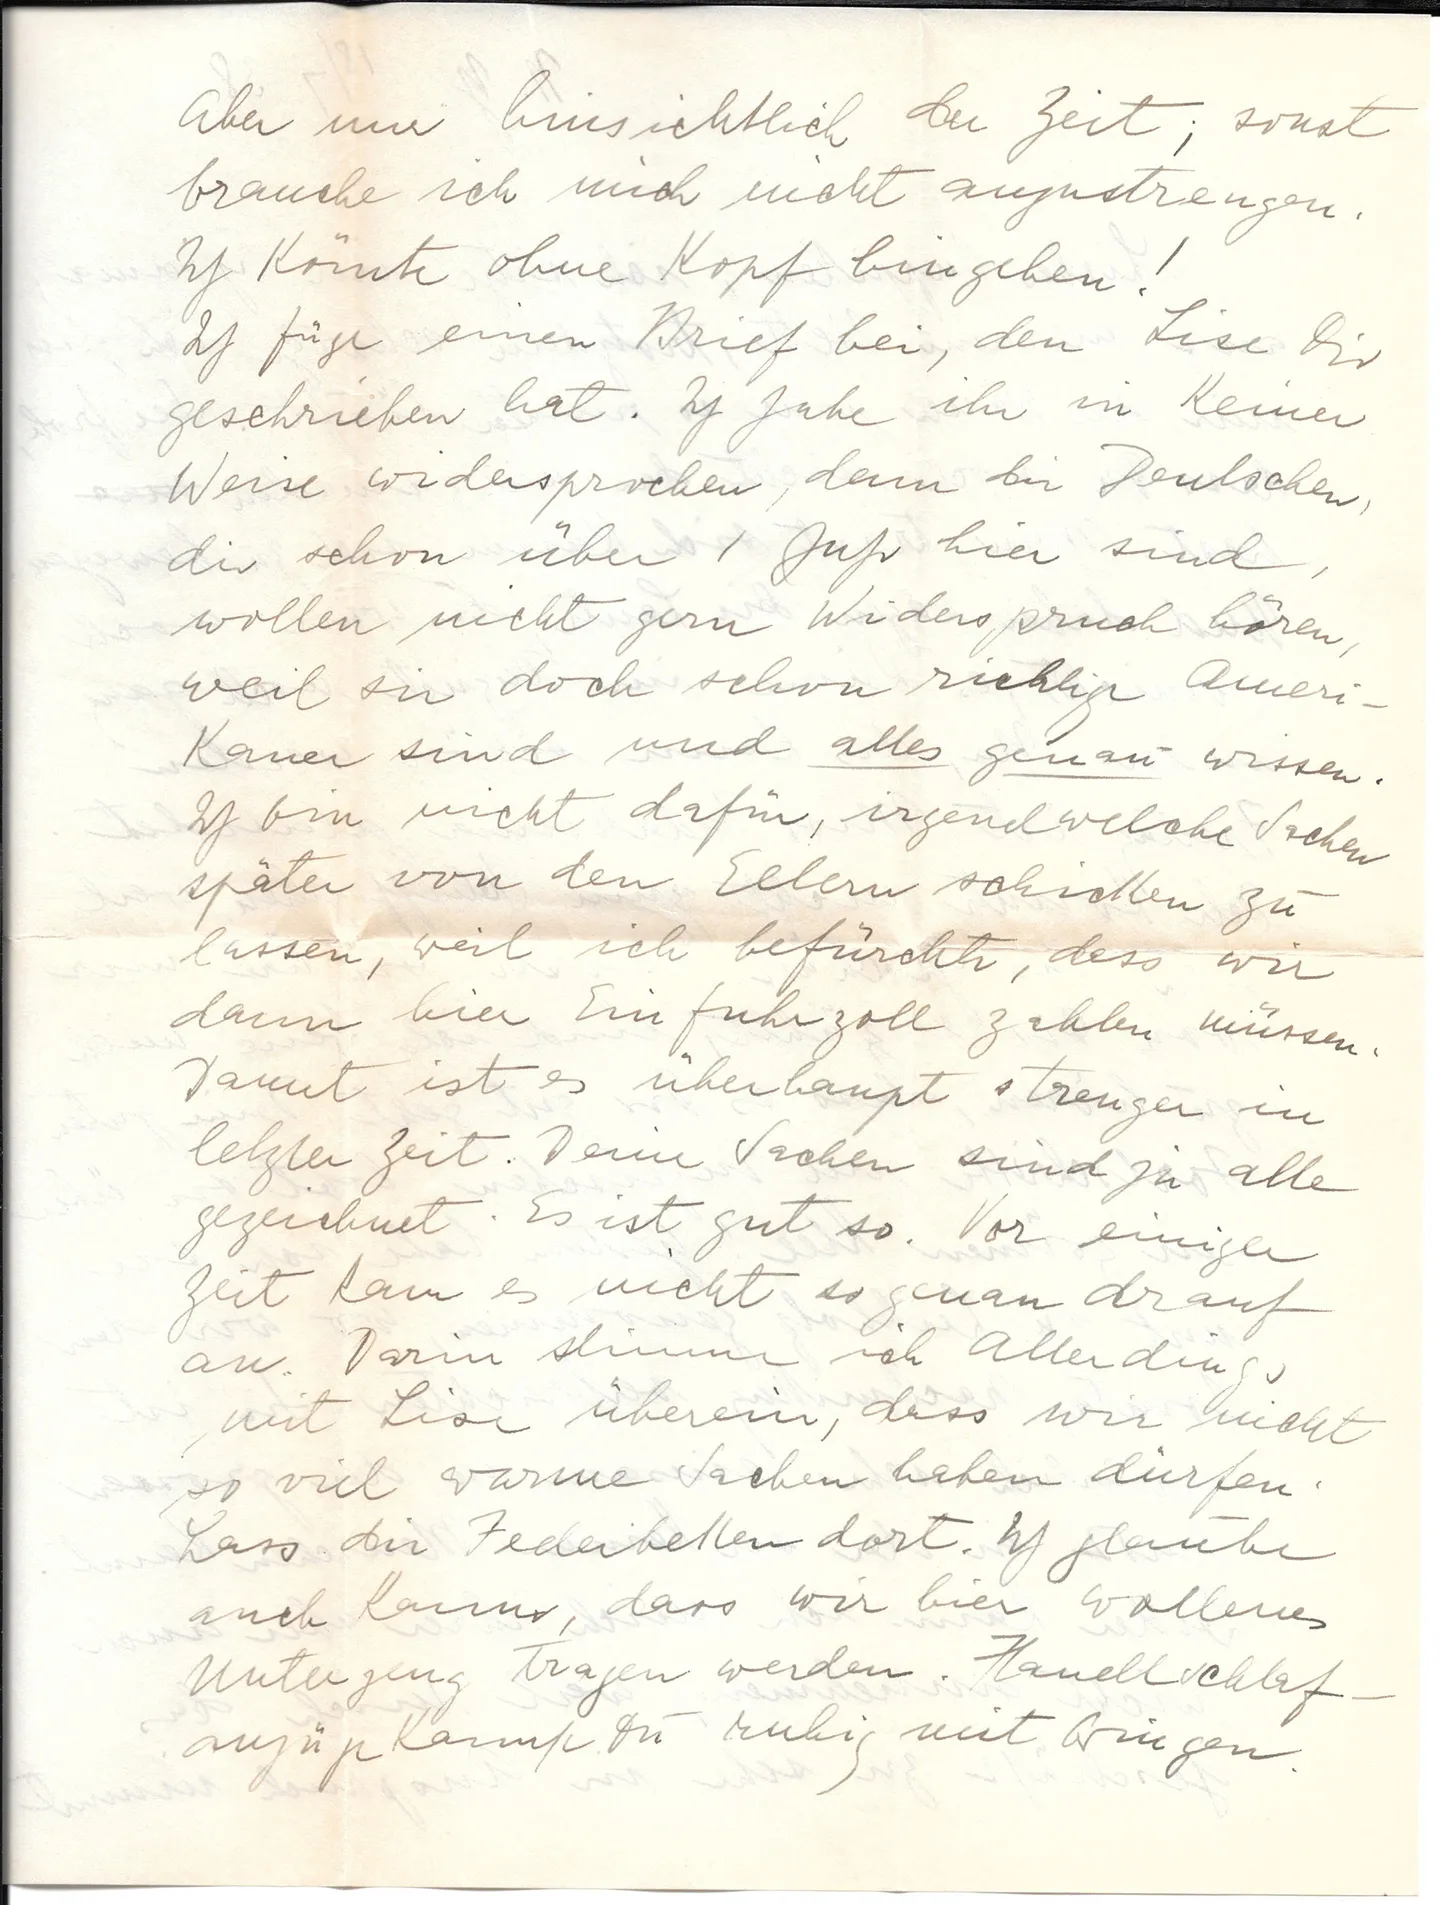 Aber nur hinsichtlich der Zeit; sonst
brauche ich mich nicht anzustrengen.
Ich könnte ohne Kopf hingehen!
Ich füge einen Brief bei, den Lise Dir
geschrieben hat. Ich habe ihr in keiner
Weise widersprochen, denn die Deutschen,
die schon über 1 Jahr hier sind,
wollen nicht gern Widerspruch hören,
weil sie doch schon richtige Ameri-
kaner sind und alles genau wissen.
Ich bin nicht dafür, irgendwelche Sachen
später von den Eltern schicken zu
lassen, weil ich befürchte, dass wir
dann hier Einfuhrzoll zahlen müssen.
Damit ist es überhaupt strenger in
letzter Zeit. Deine Sachen sind ja alle
gezeichnet. Es ist gut so. Vor einiger
Zeit kam es nicht so genau drauf
an. Darin stimme ich allerdings
mit Lise überein, dass wir nicht
so viel warme Sachen haben dürfen.
Lass die Federbetten dort. Ich glaube
auch kaum, dass wir hier wollenes
Unterzeug tragen werden. Flanellschlaf-
anzüge kannst Du ruhig mit bringen.